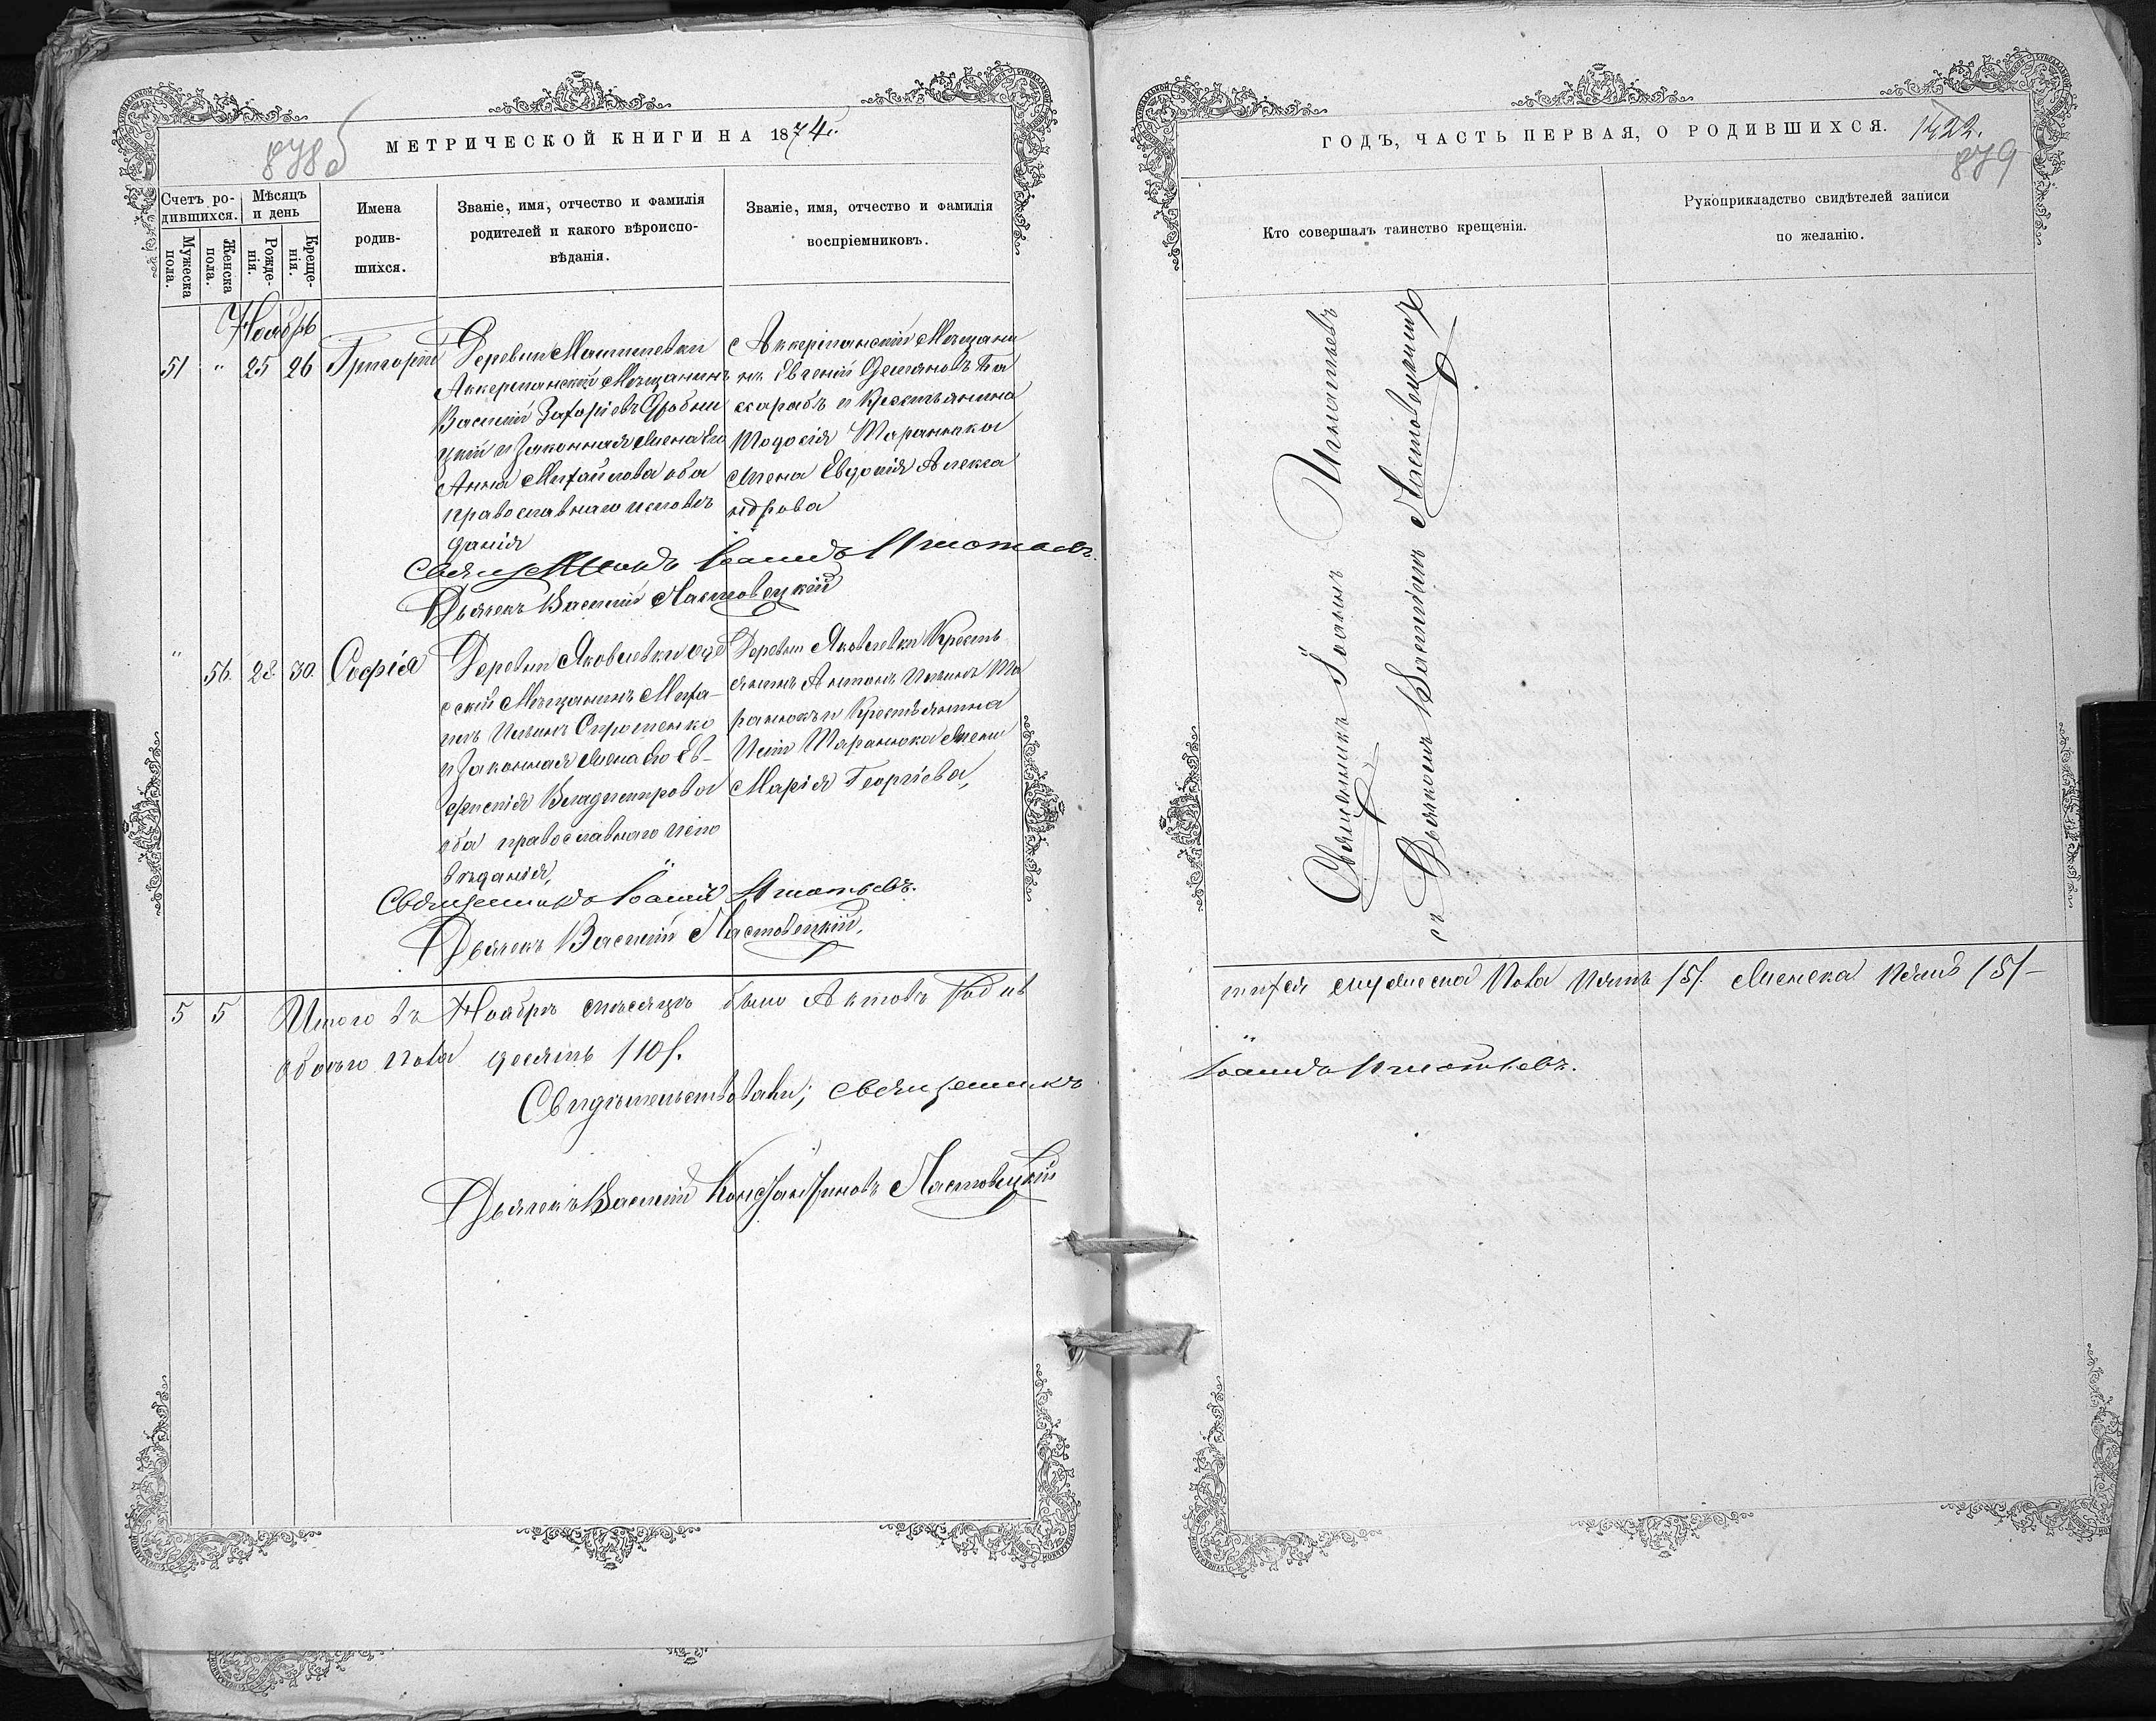 МЕТРИЧЕСКОЙ КНИГИ НА 1874.
878б
Счетъ ро-
дившихся.
Мужеска
пола.
Женска
пола.
Мѣсяцъ
и день
Рожде-
нія.
Креще-
нія.
Имена
родив-
шихся.
Званіе, имя, отчество и фамилія
родителей и какого вѣроиспо-
вѣданія.
Званіе, имя, отчество и фамилія
воспріемниковъ.
Ноябрь
51 " 25 26 Григорій
Деревни
Аккерманскій Мещанинъ
Василій Захаріевъ
и Законная жена его
Анна Михайлова оба
православнаго исповѣ
данія
Аккерманскій Мещани
нъ Евгеній
и Крестьянина
Тодосія Таранюка
жена Евдокія Алекса
ндрова
Священникъ Іоаннъ Игнатьевъ.
Дьячекъ Василій Ластовецкій
" 56. 28. 30. Софія
Деревни Яковлевки Оде
сскій Мещанинъ Миха-
илъ Ильинъ
и Законная жена его Ев-
Владимирова
оба православнаго испо
вѣданія,
Деревни Яковлевки Кресть
янинъ Антонъ Ильинъ Та
ранюкъ и Крестьянина
Таранюка жена
Марія Георгіева,
Священникъ Іоаннъ Игнатьевъ.
Дьячекъ Василій Ластовецкій.
5 5 Итого въ Ноябрѣ мѣсяцѣ было Актовъ
обоего пола десять /10/.
Свидѣтельствовали; Священникъ
Дьячекъ Василій Константиновъ Ластовецкій
ГОДЪ, ЧАСТЬ ПЕРВАЯ, О РОДИВШИХСЯ.
1722.
879
Кто совершалъ таинство крещенія.
Рукоприкладство свидѣтелей записи
по желанію.
Священникъ Іоаннъ Игнатьевъ
съ Дьячкомъ Василіемъ Ластовецкимъ
мужеска пола пять /5/. женска пять /5/-
Іоаннъ Игнатьевъ.